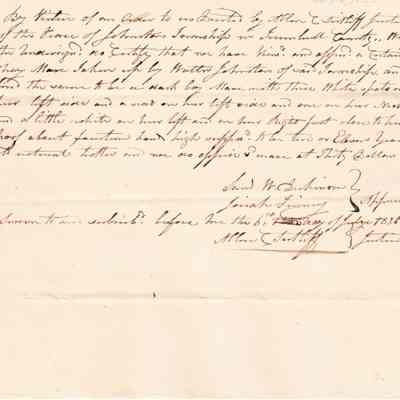 By Virtue of an Order to us directed by Abner C Sutliff Justice
of the Peace of Johnston Township in Trumbull County We
the Undersigned do Certify that we have View and apprd a Certain
Mare taken up by Johnston of said Township and
the same to be a dark bay Mare with three White spots on
her left side and a on her left side and one on her Neck
and a little white on her left and on her Right foot close to her
hoof about fourteen hands high supposd to be two or Eleven Years
natural trotter and we do apprise mare at Thirty Dollars
Saml W. Dickinson
Josiah Finney
Sworn to and subscribd before me the 6th day of 1836
Abner C Sutliff